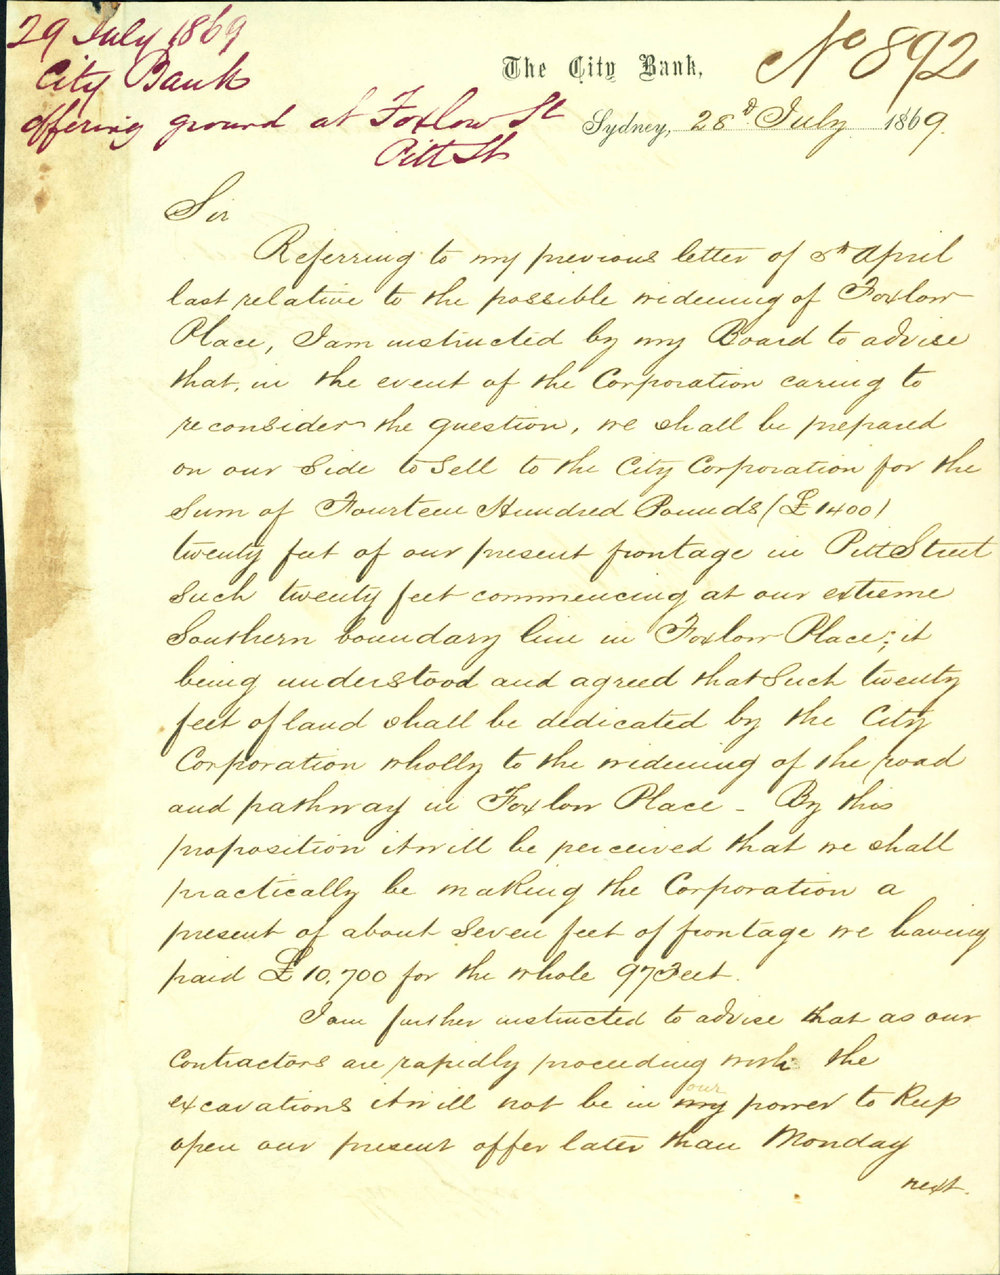 29 July 1869
City Bank
offering ground at Foxlow St
Pitt St
No 892
The City Bank,
Sydney, 28th July 1869.
Sir
Referring to my previous letter of 8th April
last relative to the possible widening of Foxlow
Place, I am instructed by my Board to advise
that, in the event of the Corporation caring to
reconsider the question, we shall be prepared
on our side to sell to the City Corporation for the
Sum of Fourteen Hundred Pounds (£1400)
twenty feet of our present frontage in Pitt Street
Such twenty feet commencing at our extreme
Southern boundary line in Foxlow Place; it
being understood and agreed that Such twenty
feet of land shall be dedicated by the City
Corporation wholly to the widening of the road
and pathway in Foxlow Place - By this
proposition it will be perceived that we shall
practically be making the Corporation a
present of about Seven feet of frontage we having
paid £10,700 for the whole 97 Feet.
I am further instructed to advise that as our
Contractors are rapidly proceeding with the
excavations it will not be in my our power to Keep
open our present offer later than Monday
next.